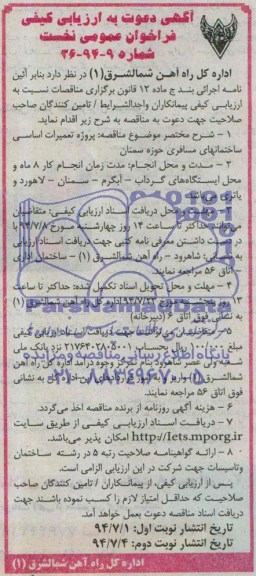 آگهی دعوت به ارزیابی کیفی
فراخوان عمومی نخست
شماره ۹-۹۴-۲۶
اداره کل راه آهن شمالشرق(۱) در نظر دارد بنابر آئین
نامه اجرائی بند ج ماده ۱۲ قانون برگزاری مناقصات نسبت به
ارزیابی کیفی پیمانکاران واجدالشرایط / تامین کنندگان صاحب
صلاحیت جهت دعوت به مناقصه به شرح زیر اقدام نماید.
۱ - شرح مختصر موضوع مناقصه: پروژه تعمیرات اساسی
ساختمانهای مسافری حوزه سمنان
۲ - مدت و محل انجام: مدت زمان انجام کار ۸ ماه و
محل ایستگاه‌های گرداب - آبگرم - سمنان - لاهورد و
۳ - مهلت و محل دریافت اسناد ارزیابی کیفی: متقاضیان
می‌توانند حداکثر تا ساعت ۱۴ روز چهارشنبه مورخ ۹۴/۷/۸ با
در دست داشتن معرفی نامه کتبی جهت دریافت اسناد ارزیابی
به نشانی: شاهرود - راه آهن شمالشرق (۱) - ساختمان اداری
- اتاق ۵۶ مراجعه نمایند.
۴ - مهلت و محل تحویل اسناد تکمیل شده: حداکثر تا ساعت
اداره کل راه آهن شمالشرق (۱)
به نشانی فوق اتاق ۶ (دبیرخانه)
۵ - متقاضیان می‌توانند جهت دریافت اسناد ارزیابی کیفی
مبلغ ۱۰۰/۰۰۰ ریال بحساب ۲۱۷۶۴۰۲۸۰۸۰۰۱ نزد بانک ملی
شعبه ولی عصر شاهرود بنام تمرکز وجوه درآمد اداره کل راه آهن
شمالشرق (۱) واریز و به امور قراردادهای این اداره کل به نشانی
فوق اتاق ۵۶ مراجعه نمایند.
۶ - هزینه آگهی روزنامه از برنده مناقصه اخذ می‌گردد.
۷ - دریافت اسناد ارزیابی کیفی از طریق سایت
http://Iets.mporg.ir امکان پذیر می‌باشد.
۸ - ارائه گواهینامه صلاحیت رتبه ۵ در رشته ساختمان
وتاسیسات جهت شرکت در این ارزیابی الزامی است.
پس از ارزیابی کیفی، از پیمانکاران / تامین کنندگان صاحب
صلاحیت که حداقل امتیاز لازم را کسب نموده باشند جهت
دریافت اسناد مناقصه دعوت بعمل خواهد آمد.
تاریخ انتشار نوبت اول: ۹۴/۷/۱
تاریخ انتشار نوبت دوم: ۹۴/۷/۴
اداره کل راه آهن شمالشرق (۱)
ParsNamadData
پایگاه اطلاع رسانی مناقصه و مزایده
۰۲۱-۸۸۳۴۹۶۷۰-۵